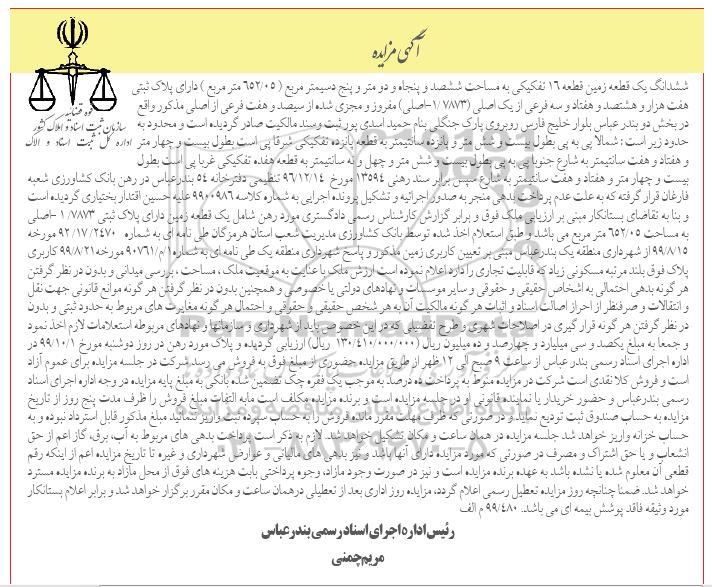 آگهی مزایده
قوه قضائیه
سازمان ثبت اسناد و املاک کشور
اداره کل ثبت اسناد و املاک
ششدانگ یک قطعه زمین قطعه ۱۶ تفکیکی به مساحت ششصد و پنجاه و دو متر و پنج دسیمتر مربع (۶۵۲/۰۵ متر مربع) دارای پلاک ثبتی
هفت هزار و هشتصد و هفتاد و سه فرعی از یک اصلی (۱/۷۸۷۳-اصلی) مفروز و مجزی شده از سیصد و هفت فرعی از اصلی مذکور واقع
در بخش دو بندر عباس بلوار خلیج فارس روبروی پارک جنگلی بنام حمید اسدی پور ثبت و سند مالکیت صادر گردیده است و محدود به
حدود زیر است: شمالا پی به پی بطول بیست و شش متر و پانزده سانتیمتر به قطعه پانزده تفکیکی شرقا پی است بطول بیست و چهار متر
و هفتاد و هفت سانتیمتر به شارع جنوبا پی به پی بطول بیست و شش متر و چهل و نه سانتیمتر به قطعه هفده تفکیکی غربا پی است بطول
بیست و چهار متر و هفتاد و هفت سانتیمتر به شارع سپس برابر سند رهنی ۱۳۵۹۴ مورخ ۹۶/۱۲/۱۴ تنظیمی دفترخانه ۵۴ بندرعباس در رهن بانک کشاورزی شعبه
فارغان قرار گرفته که به علت عدم پرداخت بدهی منجر به صدور اجرائیه و تشکیل پرونده اجرایی به شماره کلاسه ۹۹۰۰۹۸۶ علیه حسین اقتدار بختیاری گردیده است
و بنا به تقاضای بستانکار مبنی بر ارزیابی ملک فوق و برابر گزارش کارشناس رسمی دادگستری مورد رهن شامل یک قطعه زمین دارای پلاک ثبتی ۱/۷۸۷۳ -اصلی
به مساحت ۶۵۲/۰۵ متر مربع می باشد و طبق استعلام اخذ شده توسط بانک کشاورزی مدیریت شعب استان هرمزگان طی نامه ای به شماره ۹۲/۱۷/۲۴۷۰ مورخه
۹۹/۸/۱۵ از شهرداری منطقه یک بندرعباس مبنی بر تعیین کاربری زمین مذکور و پاسخ شهرداری منطقه یک طی نامه ای به شماره ۱/م/۹۰۷۶۱ مورخه ۹۹/۸/۲۱ کاربری
پلاک فوق بلند مرتبه مسکونی زیاد که قابلیت تجاری را دارد اعلام نموده است ارزش ملک با عنایت به موقعیت ملک، مساحت، بررسی میدانی و بدون در نظر گرفتن
هر گونه بدهی احتمالی به اشخاص حقیقی و حقوقی و سایر موسسات و نهادهای دولتی یا خصوصی و همچنین بدون در نظر گرفتن هر گونه موانع قانونی جهت نقل
و انتقالات و صرفنظر از احراز اصالت اسناد و اثبات هر گونه مالکیت آن به هر شخص حقیقی و حقوقی و احتمال هر گونه مغایرت های مربوط به حدود ثبتی و بدون
در نظر گرفتن هر گونه قرار گیری در اصلاحات شهری و طرح تفصیلی که در این خصوص باید از شهرداری و سازمانها و نهادهای مربوطه استعلامات لازم اخذ نمود
و جمعا به مبلغ یکصد و سی میلیارد و چهارصد و ده میلیون ریال (۱۳۰/۴۱۰/۰۰۰/۰۰۰ ریال) ارزیابی گردیده و پلاک مورد رهن در روز دوشنبه مورخ ۹۹/۱۰/۱ در
اداره اجرای اسناد رسمی بندر عباس از ساعت ۹ صبح الی ۱۲ ظهر از طریق مزایده حضوری از مبلغ فوق به فروش می رسد شرکت در جلسه مزایده برای عموم آزاد
است و فروش کلا نقدی است شرکت در مزایده منوط به پرداخت ده درصد به موجب یک فقره چک تضمین شده بانکی به مبلغ پایه مزایده در وجه اداره اجرای اسناد
رسمی بندرعباس و حضور خریدار یا نماینده قانونی او در جلسه مزایده است و برنده مزایده مکلف است مابه التفات مبلغ فروش را ظرف مدت پنج روز از تاریخ
مزایده به حساب صندوق ثبت تودیع نماید و در صورتی که ظرف مهلت مقرر مانده فروش را به حساب سپرده ثبت واریز ننمائید مبلغ مذکور قابل استرداد نبوده و به
حساب خزانه واریز خواهد شد جلسه مزایده در همان ساعت و مکان تشکیل خواهد شد. لازم به ذکر است پرداخت بدهی های مربوط به آب، برق، گاز اعم از حق
انشعاب و یا حق اشتراک و مصرف در صورتی که مورد مزایده دارای آنها باشد و نیز بدهی های مالیاتی و عوارض شهرداری و غیره تا تاریخ مزایده اعم از اینکه رقم
قطعی آن معلوم شده یا نشده باشد به عهده برنده مزایده است و نیز در صورت وجود مازاد، وجوه پرداختی بابت هزینه های فوق از محل مازاد به برنده مزایده مسترد
خواهد شد. ضمنا چنانچه روز مزایده تعطیل رسمی اعلام گردد، مزایده روز اداری بعد از تعطیلی در همان ساعت و مکان مقرر برگزار خواهد شد و برابر اعلام بستانکار
مورد وثیقه فاقد پوشش بیمه ای می باشد. ۹۹/۴۸۰ م الف
رئیس اداره اجرای اسناد رسمی بندرعباس
مریم چمنی